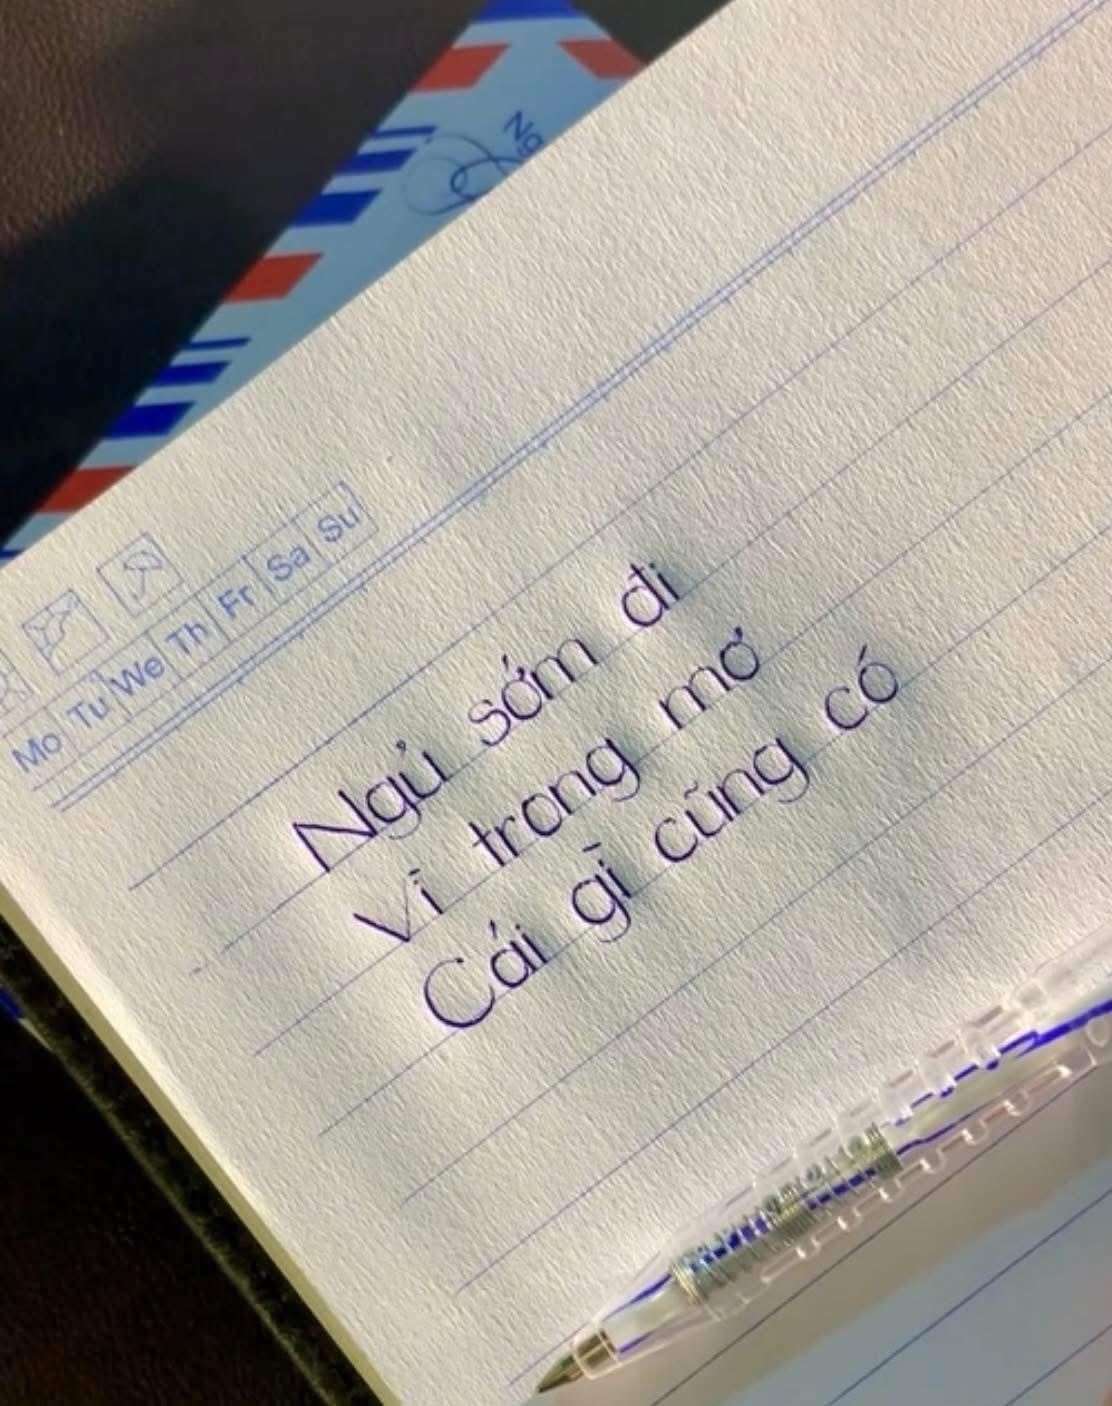 No
Mo Tu We Th Fr Sa Su
Ngủ sớm đi
vì trong mơ
Cái gì cũng có